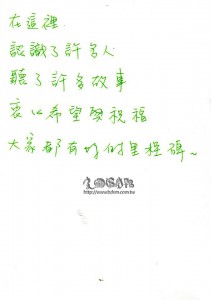 在這裡
認識了許多人
聽了許多故事
衷心希望與祝福
大家都有好的里程碑~